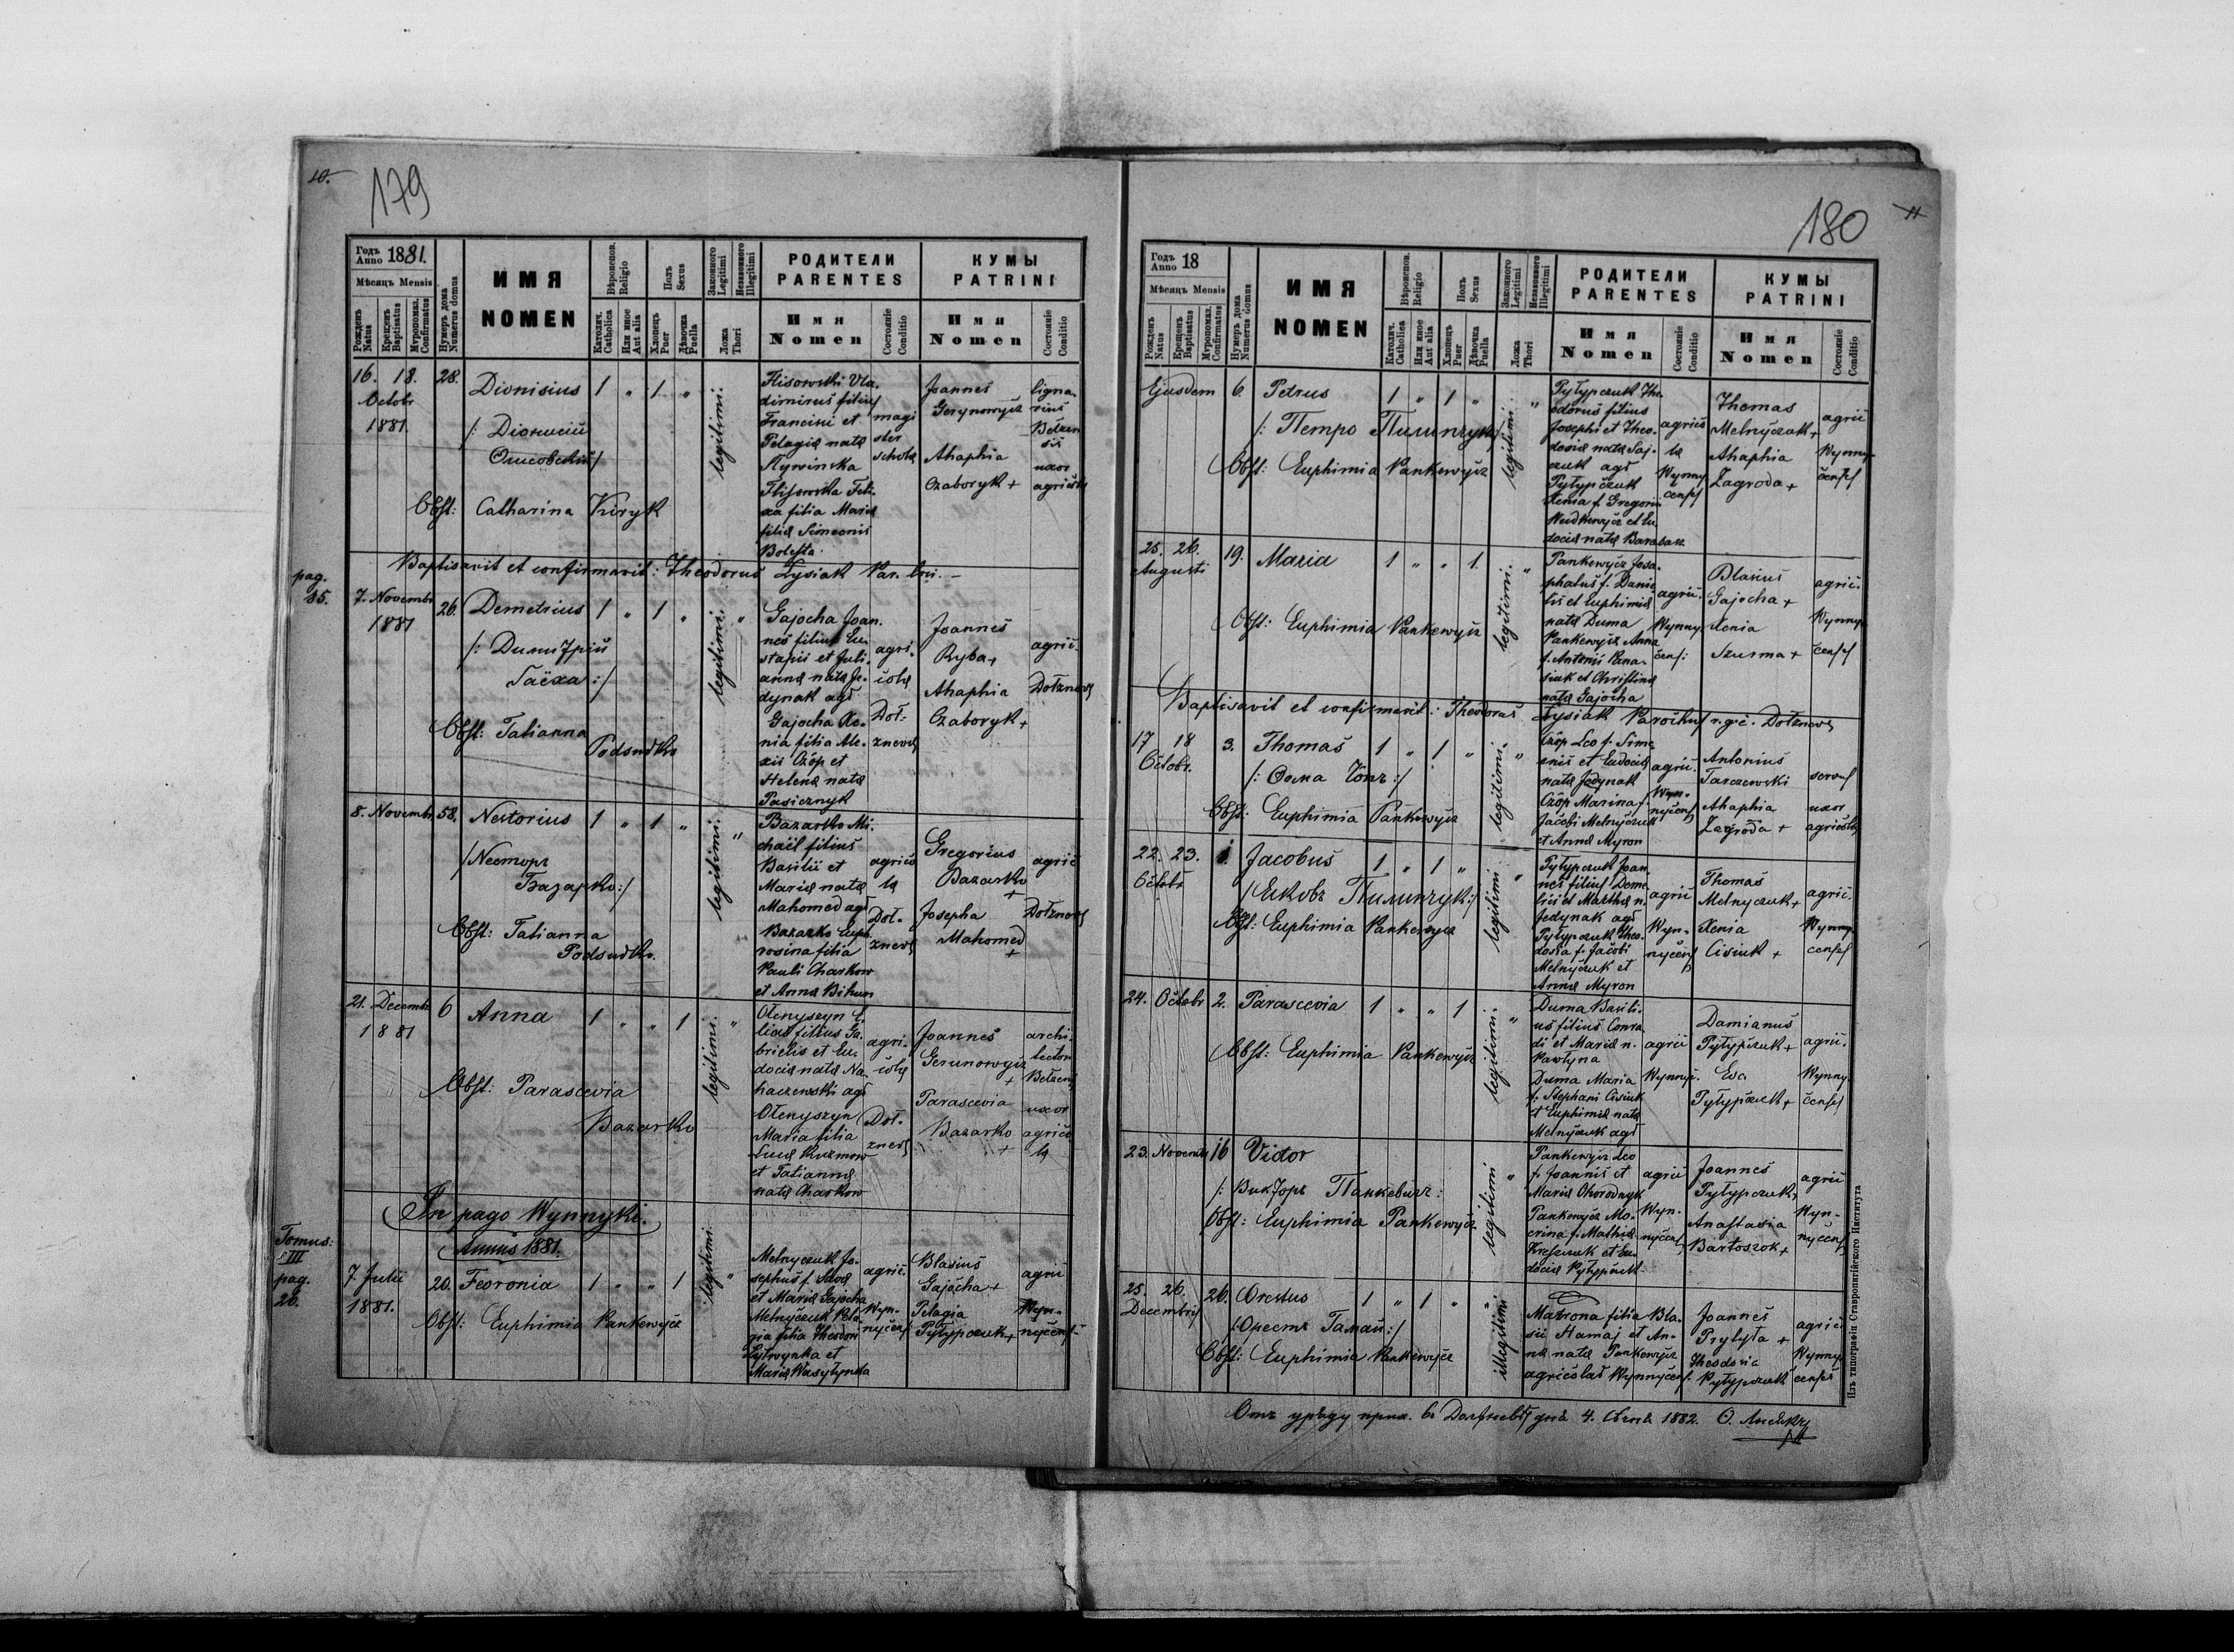 10.
179
Годъ Anno 1881.
Мѣсяцъ Mensis
Рожденъ Natus
Крещенъ Baptisatus
Муропомаз. Confirmatus
Нумеръ дома Numerus domus
ИМЯ
NOMEN
Вѣроиспов. Religio
Католич. Catholica
Или иное Aut alia
Полъ Sexus
Хлопецъ Puer
Дѣвочка Puella
Законного Legitimi
Незаконного Illegitimi
Ложа Thori
РОДИТЕЛИ
PARENTES
Имя Nomen
Состоянiе Conditio
КУМЫ
PATRINI
Имя Nomen
Состоянiе Conditio
16. 18. 28. Dionisius 1 " 1 "
Octobr
1881.
legitimi.
Obst: Catharina Kiryk
dimirus filius
Francisci et
Pelagia nata
magi
ster
schola
Joannes
Gerynowycz
Ahaphia
Czaboryk +
ligna-
rius
Betzen
sis
uxor
xa filia Maria
filia Simeonis
Bolesta
Baptisavit et confirmavit: Theodorus Lysiak Par. loci. –
pag.
85.
7. Novembr 26. Demetrius 1 " 1 "
1881
/: Димитрій
Гаёха :/
Obst: Tatianna
Podsudko
legitimi. "
Gajocha Joan.
nes filius Eu
stapii et Juli.
anna nata Je.
dynak agr
Gajocha Xe-
nia filia Ale-
xii Czôp et
Helena nata
Pasicznyk
agri-
cola
Doł-
znevs
Joannes
Ryba +
Ahaphia
Czaboryk +
agric.
Dołznovs
8. Novembr. 58. Nestorius 1 " 1 "
/Несторъ
Базарко:/
Obst: Tatianna
Podsudko.
legitimi. "
Bazarko Mi.
chail filius
Basilii et
Maria nata
Mahomed agr
Bazarko Euph
rosina filia
Pauli Charkow
et Anna Bihun
agrico
la
Doł-
znevs
Gregorius
Bazarko
+
Josepha
Mahomed
+
agric
Dołznovs
21. Decembr 6 Anna 1 " " 1
1881
Obst: Parascevia
Bazarko
legitimi. "
Ołenyszyn E.
lias filius Ga.
brielis et Eu.
docia nata Na-
haczewski agr
Ołenyszyn
Maria filia
Luca Kuzmow
et Tatianna
nata Charkow
agri-
cola
Doł-
znevs
Joannes
Gerunowycz
+
Parascevia
Bazarko
+
archi.
tecton
Betzens
uxor
agrico
la
In pago Wynnyki.
Annus 1881.
Tomus:
III
pag.
20.
7. Julii 20. Fevronia 1 " " 1
1881.
Obst: Euphimia Pankewycz
legitimi. "
Melnyczuk Jo-
sephus f. Sava
et Maria Gajocha
Melnyczuk Pela-
gia filia Theodori
Lytwynka et
Maria Wasylynka
agric.
Wyn-
nyčens
Blasius
Gajocha +
Pelagia
Pyłypczuk +
agric
Wyn-
nyčens
11
180
Годъ Anno 18
Мѣсяцъ Mensis
Рожденъ Natus
Крещенъ Baptisatus
Муропомаз. Confirmatus
Нумеръ дома Numerus domus
ИМЯ
NOMEN
Вѣроиспов. Religio
Католич. Catholica
Или иное Aut alia
Полъ Sexus
Хлопецъ Puer
Дѣвочка Puella
Законного Legitimi
Незаконного Illegitimi
Ложа Thori
РОДИТЕЛИ
PARENTES
Имя Nomen
Состоянiе Conditio
КУМЫ
PATRINI
Имя Nomen
Состоянiе Conditio
Ejusdem 6. Petrus 1 " 1 "
/: Петро Пилипчукъ/
Obst: Euphimia Pankewycz
legitimi. "
Pyłypczuk The
odorus filius
Josephi et Theo-
dosia nata Saj-
czuk agr
Pyłypčzuk
Xenia f. Gregorii
docia nata Barabasz
agrico
la
Wynny
čenses
Thomas
Melnyčzuk +
Ahaphia
Zagroda +
agric
Wynny-
čenses
25. 26. 19. Maria 1 " " 1.
Augusti
Obst: Euphimia Pankewycz
legitimi. "
Pankewycz Josa-
phatus f. Danie
lis et Euphimia
nata Duma
Pankewycz Anna
f. Antonii Pana-
siuk et Christina
nata Gajocha
agric.
Wynny
čens:
Blasius
Gajocha +
Xenia
Szurma +
agric.
Wynny
čenses
Baptisavit et confirmavit: Theodorus Lysiak Parochus r.g.c. Dołznovs
17 18 3. Thomas 1 " 1 "
Octobr.
/: Ѳома Чопъ :/
Obst: Euphimia Pankewycz
legitimi. "
Czôp Leo f. Sime
onis et Eudocia
nata Jedynak
Czôp Marina f.
Jacobi Melnyczuk
et Anna Myron
agric.
Wyn-
nyčens
Antonius
Tarczewski
Ahaphia
Zagroda +
servus
uxor
22. 23. 1. Jacobus 1 " 1 "
Octobr
/Яковъ Пилипчукъ:/
Obst: Euphimia Pankewycz
legitimi "
Pyłypczuk Joan
nes filius Deme
trii et Martha n.
Jedynak agr
Pyłypczuk Theo-
dosia f. Jacobi
Melnyczuk et
Anna Myron
agric
Wyn-
nyčens
Thomas
Melnyczuk +
Xenia
Cisiuk +
agric.
Wynny
censes
24. Octobr 2. Parascevia 1 " " 1
Obst: Euphimia Pankewycz
legitimi. "
Duma Basili-
us filius Conra
di et Maria n.
Pawlyna
Duma Maria
f. Stephani Cisiuk
et Euphimia nata
Melnyczuk agr
agric
Wynnyč.
Damianus
Pyłypczuk +
Eva
Pyłypczuk +
agric.
Wynny
čenses
23. Novembr 16 Victor
/: Викторъ Панкевичъ :
Obst: Euphimia Pankewycz
legitimi "
Pankewycz Leo
f. Joannis et
Maria Ohorodnyk
Pankewycz Mo-
crina f. Mathia
docia Pyłypczuk
agric
Wyn-
nyčens
Joannes
Pyłypczuk +
Anastasia
Bartoszok +
agric
Wyn-
nyčens
25. 26. 26. Orestus 1 " 1 "
Decembris
/Орестъ Гамай:/
Obst: Euphimia Pankewycz
illegitimi "
Matrona filia Bla-
sii Hamaj et An-
na nata Pankewycz
Joannes
Prylypa +
Theodosia
Pyłypczuk
agric
Wynny
censes
Изъ типографiи Ставропигiйского Института
Отъ уряду прих. въ Должневѣ дня 4. Сѣчня 1882.